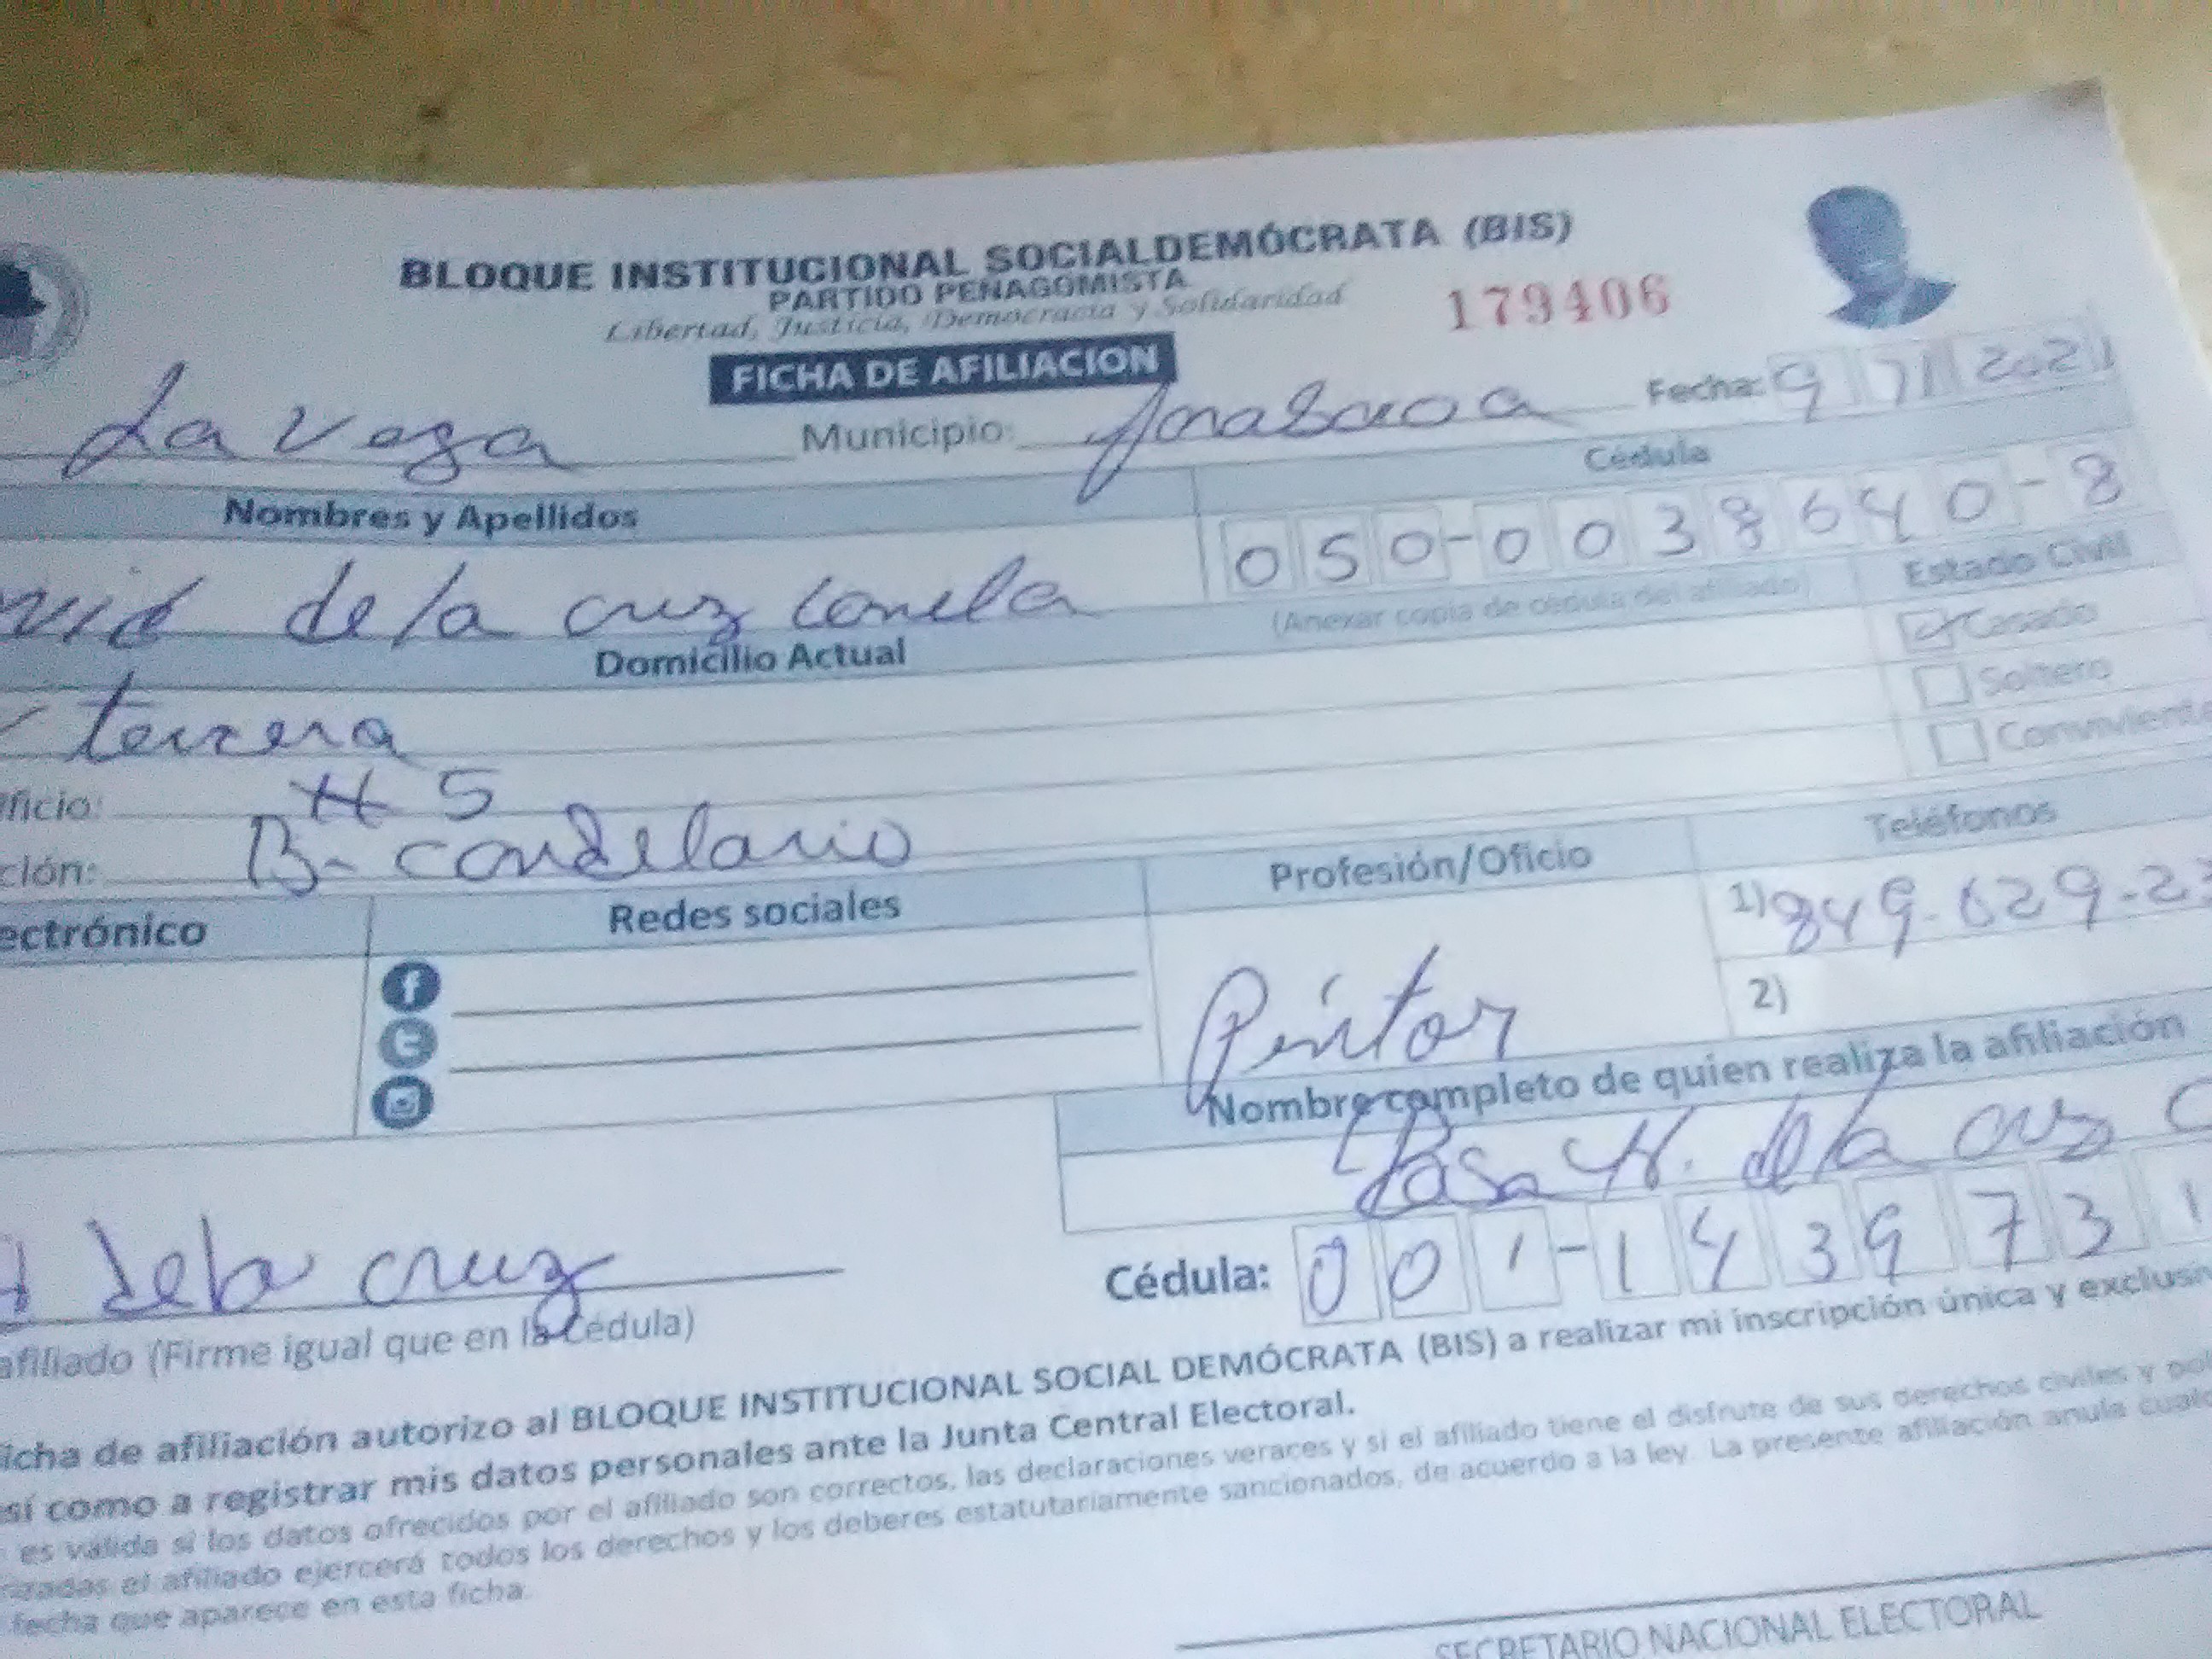 BLOQUE INSTITUCIONAL SOCIALDEMÓCRATA (BIS)
PARTIDO PEÑAGOMISTA
Libertad, Justicia, Democracia y Solidaridad
179406
FICHA DE AFILIACION
La Vega Municipio: Jarabacoa Fecha: 9 71 2021
Nombres y Apellidos Cédula
050-0038640-8
de la cruz
(Anexar copia de cédula del afiliado) Estado Civil
Domicilio Actual
Casado
Soltero
terzera
ficio: # 5
ción: B- condelario
ectrónico Redes sociales Profesión/Oficio Teléfonos
1) 849-629-2
Pintor
2)
Nombre completo de quien realiza la afiliación
Rosa H. de la cruz C
d dela cruz
Cédula: 001-1439731
afiliado (Firme igual que en la Cédula)
icha de afiliación autorizo al BLOQUE INSTITUCIONAL SOCIAL DEMÓCRATA (BIS) a realizar mi inscripción única y exclusiv
sí como a registrar mis datos personales ante la Junta Central Electoral.
es valida si los datos ofrecidos por el afiliado son correctos, las declaraciones veraces y si el afiliado tiene el disfrute de sus derechos civiles y pol
rizadas el afiliado ejercerá todos los derechos y los deberes estatutariamente sancionados, de acuerdo a la ley. La presente afiliación anula cual
fecha que aparece en esta ficha.
SECRETARIO NACIONAL ELECTORAL